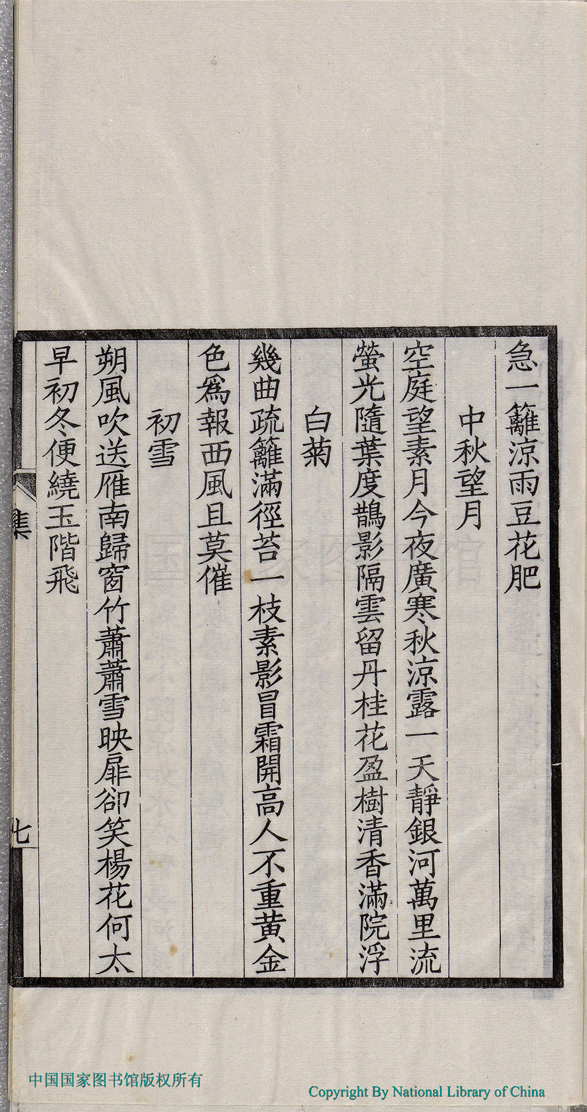 急一籬涼雨豆花肥
中秋望月
空庭望素月今夜廣寒秋涼露一天靜銀河萬里流
螢光隨葉度鵲影隔雲留丹桂花盈樹清香滿院浮
白菊
幾曲疏籬滿徑苔一枝素影冒霜開高人不重黃金
色爲報西風且莫催
初雪
朔風吹送雁南歸窗竹蕭蕭雪映扉卻笑楊花何太
早初冬便繞玉階飛
集
七
中国国家图书馆版权所有
Copyright By National Library of China